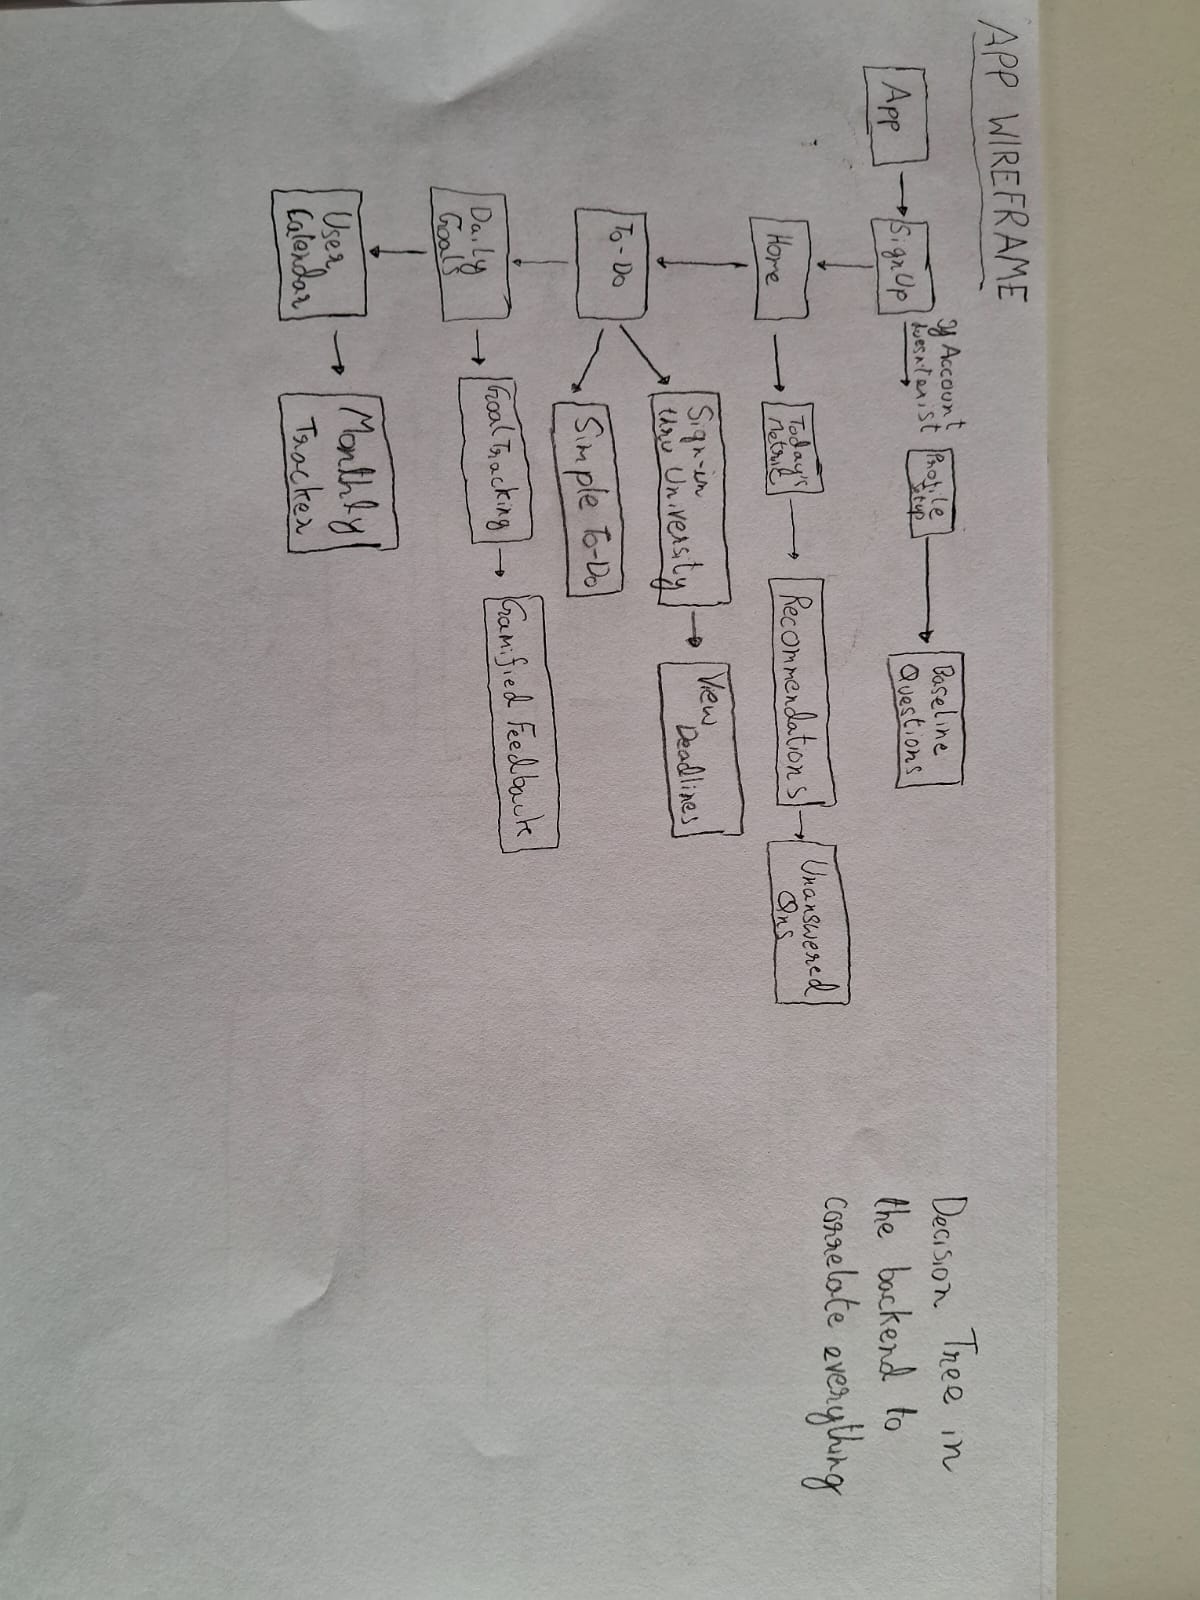 APP WIREFRAME
App
SignUp
If Account
doesn't exist
Profile
setup
Baseline
Questions
Home
Today's
Metric
Recommendations
Unanswered
Qns
To-Do
Sign-in
thru University
View
Deadlines
Simple To-Do
Daily
Goals
Goal Tracking
Gamified Feedback
User
Calendar
Monthly
Tracker
Decision Tree in
the backend to
correlate everything